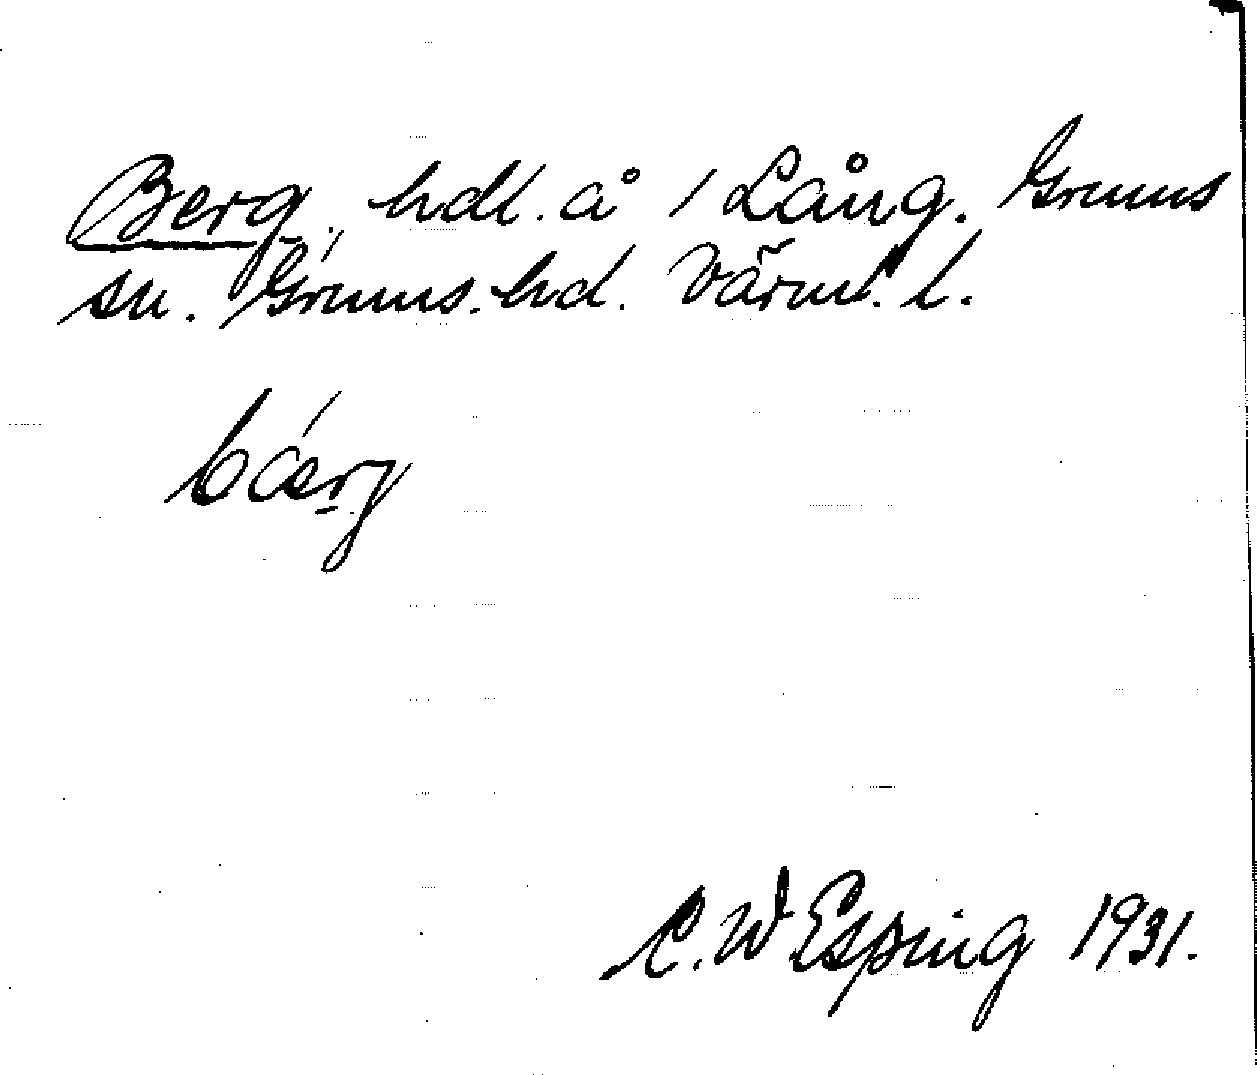 Berg, hdl. å 1 Lång. Grums
sn. Grums. hd. Värml. l.
bærj
C. W Esping 1931.